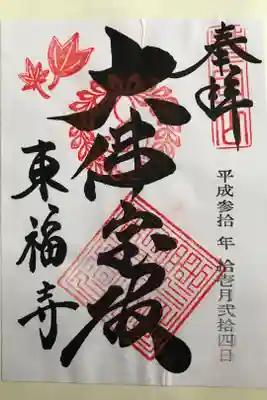 奉拝
平成参拾年拾壱月弐拾四日
大佛宝殿
東福寺